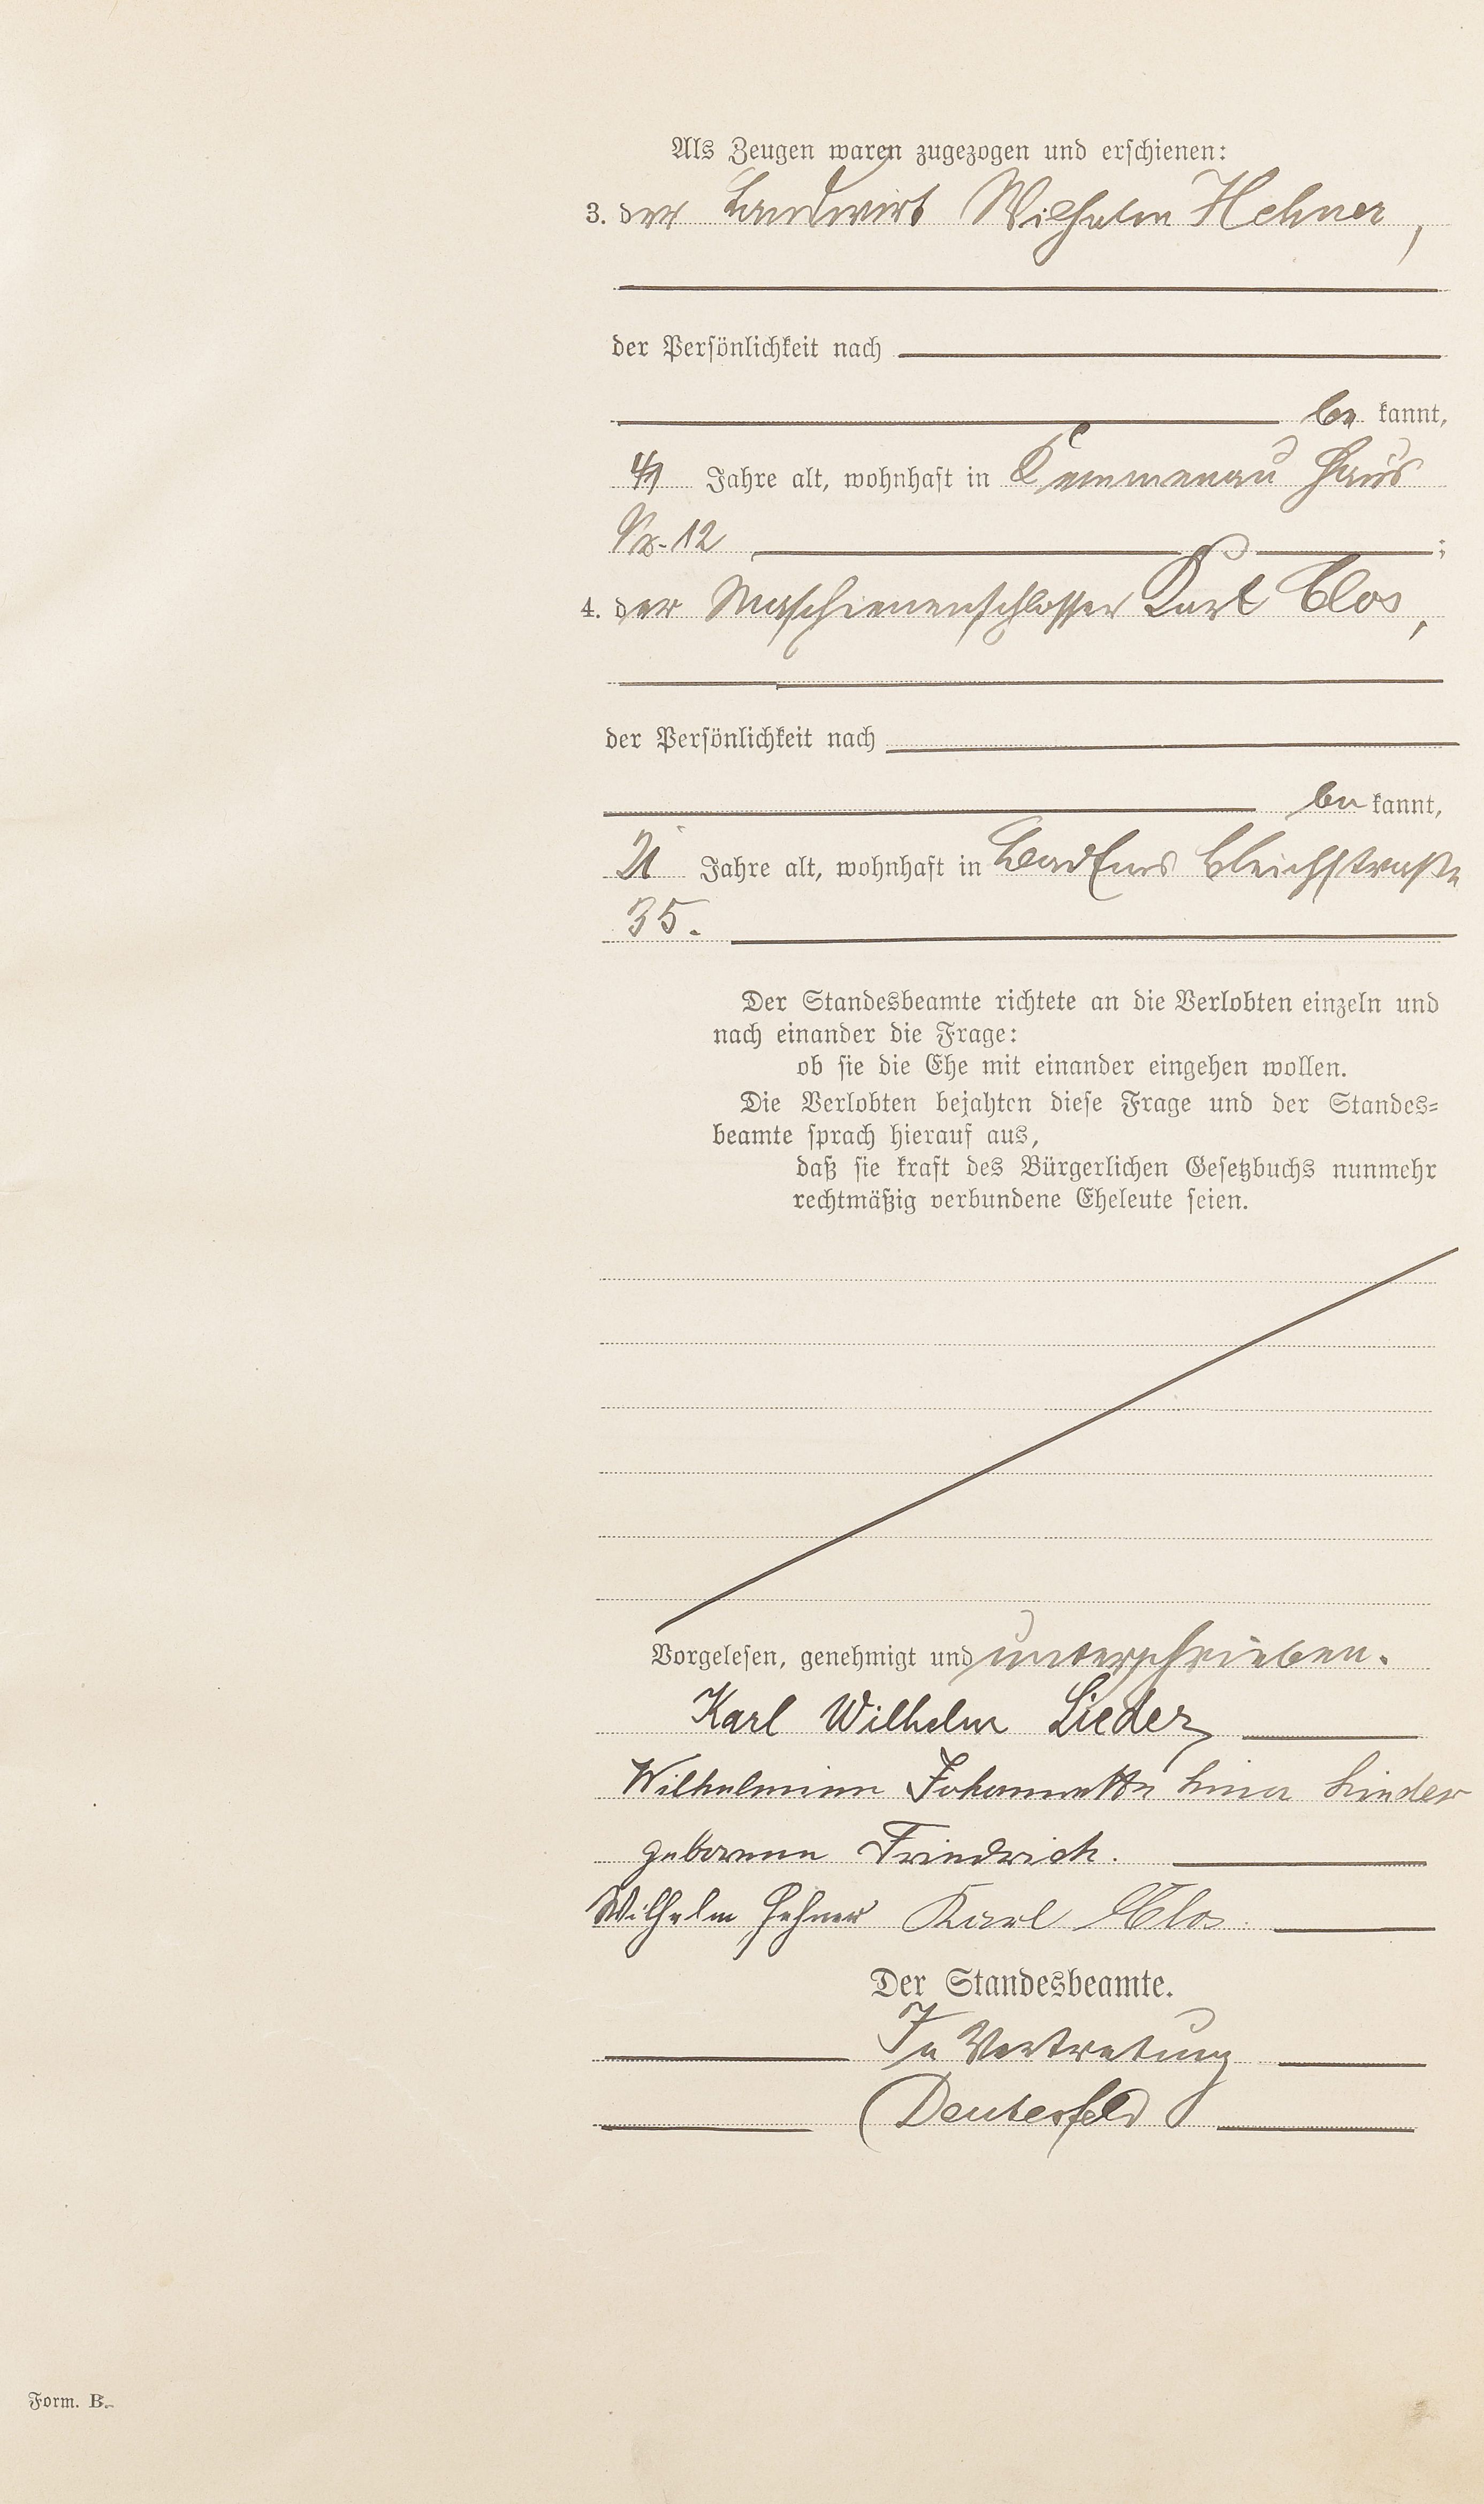 Als Zeugen waren zugezogen und erschienen:
3. der Landwirt Wilhelm Hehner,
der Persönlichkeit nach
be kannt,
Jahre alt, wohnhaft in Kemmenau Haus
Nr. 12 ;
4. der Maschienenschlosser Karl Clos,
der Persönlichkeit nach
be kannt,
21 Jahre alt, wohnhaft in Bad Ems Bleichstraße
35.
Der Standesbeamte richtete an die Verlobten einzeln und
nach einander die Frage:
ob sie die Ehe mit einander eingehen wollen.
Die Verlobten bejahten diese Frage und der Standes-
beamte sprach hierauf aus,
daß sie kraft des Bürgerlichen Gesetzbuchs nunmehr
rechtmäßig verbundene Eheleute seien.
Vorgelesen, genehmigt und unterschrieben.
Karl Wilhelm Lieder
Wilhelmine Johannette Lina Lieder
geborene Friedrich.
Wilhelm Hehner Karl Clos.
Der Standesbeamte.
In Vertretung
Deutesfeld
Form. B.